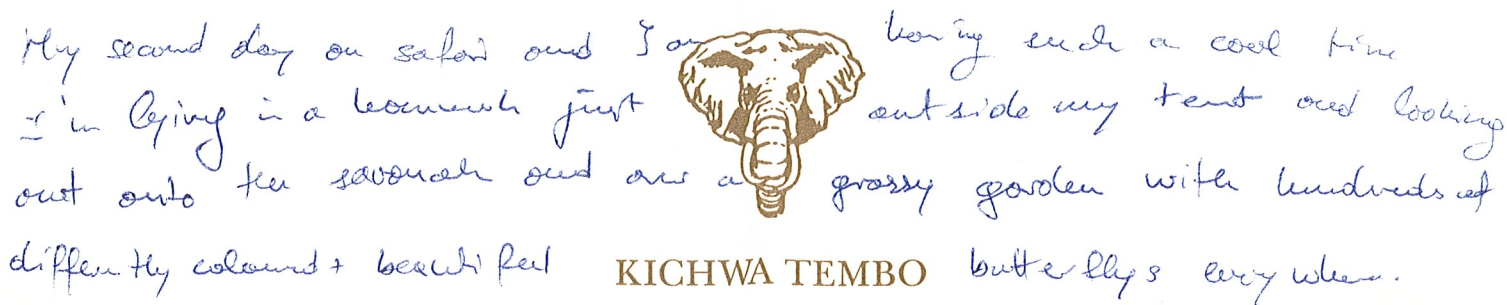 My second day on safari and I am having such a cool time
I'm lying in a hammock just outside my tent and looking
out onto the savanah and over a grassy garden with hundreds of
differently coloured + beautiful KICHWA TEMBO butterflys everywhere.